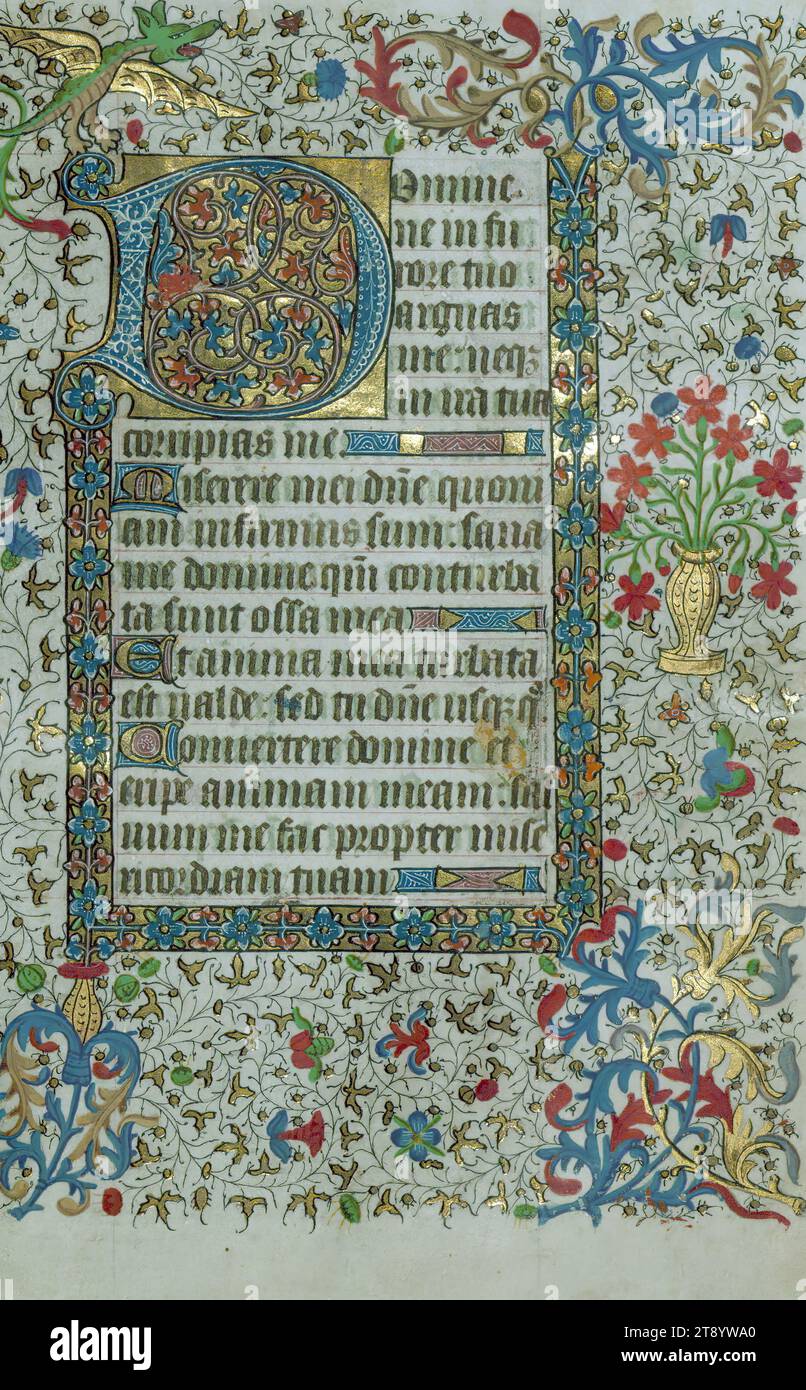 Domine
ne in fu
rore tuo
arguas
me: neq3
in ira tua
corripias me
Miserere mei dn̄e quoni
am infirmus sum: sana
me domine qm̄ conturba
ta sunt ossa mea
Et anima mea turbata
est valde: sed tu dn̄e usq3 q°
Convertere domine et
eripe animam meam: sal
uum me fac propter mise
ricordiam tuam
alamy
alamy
Image ID: 2T8YWA0
www.alamy.com